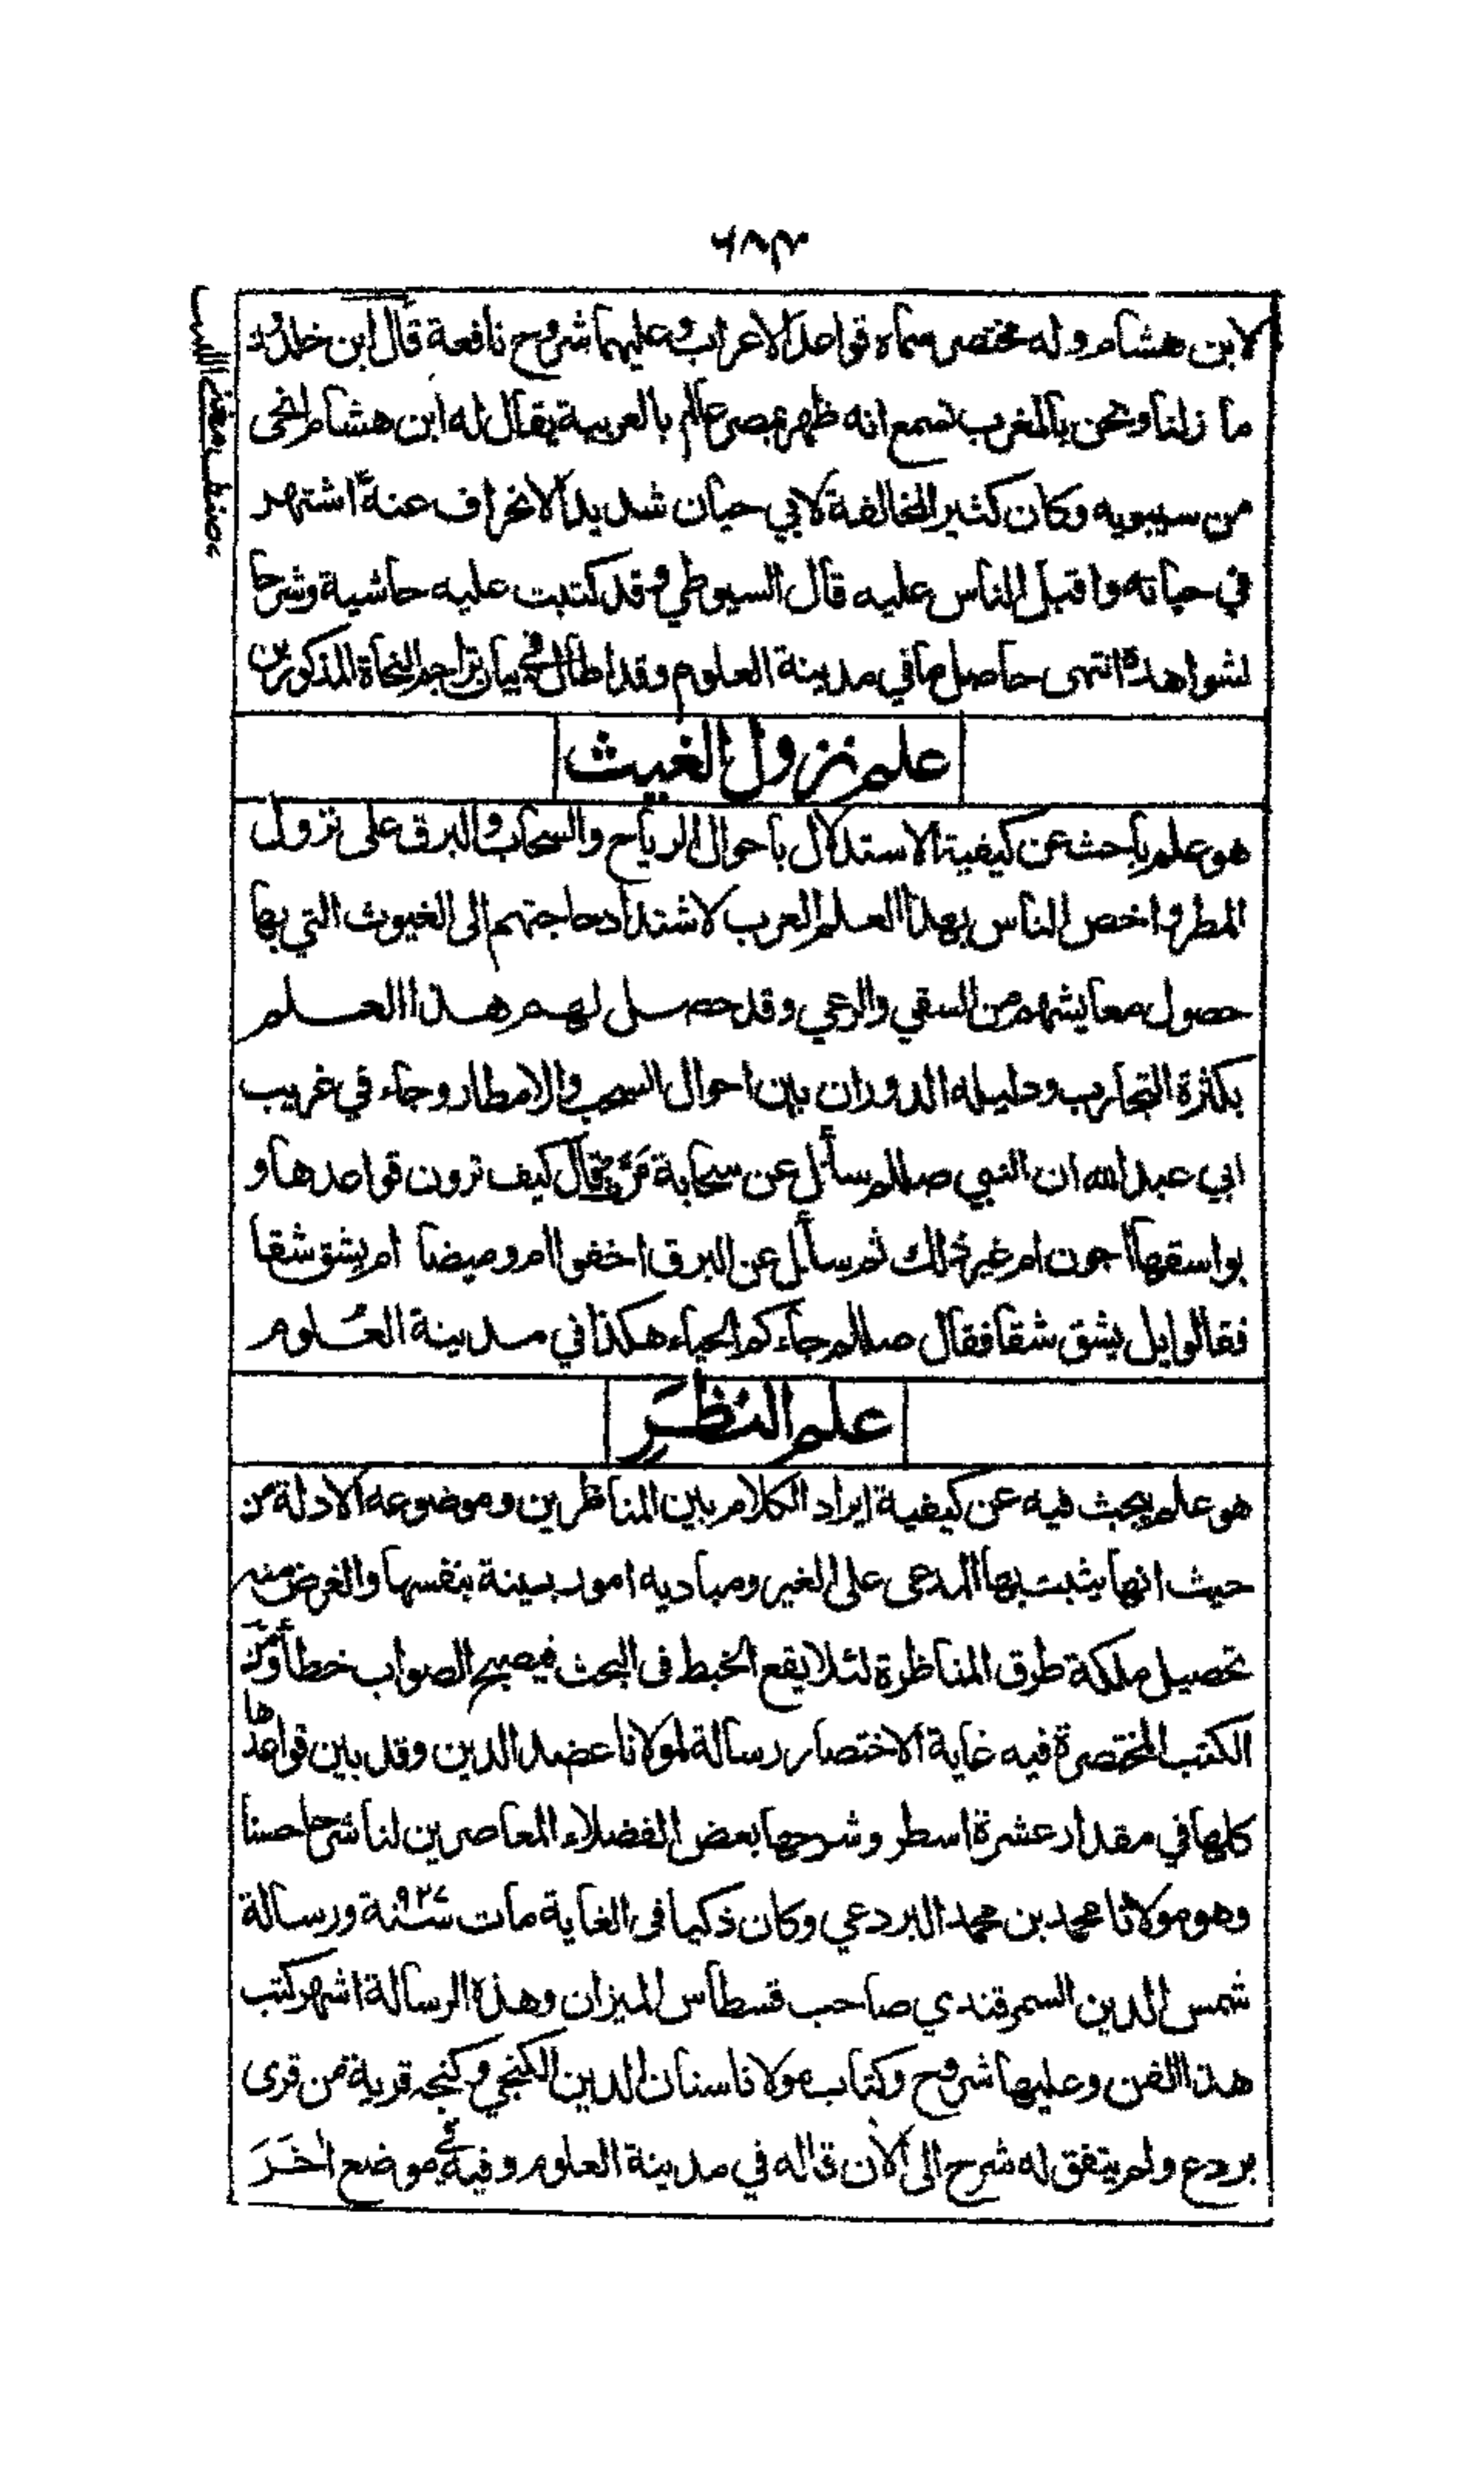 ٦٨٣
لابن هشام وله مختصر سماه قواعد الاعراب وعليهما شروح نافعة قال ابن خلدون
ما زلنا ونحن بالمغرب نسمع انه ظهر بمصر عالم بالعربية يقال له ابن هشام انحى
من سيبويه وكان كثير المخالفة لابي حيان شديد الانحراف عنه اشتهر
في حياته واقبل الناس عليه قال السيوطي وقد كتبت عليه حاشية وشرحا
لشواهده انتهى حاصل ما في مدينة العلوم وقد اطال في بيان تراجم النحاة المذكورين
علم نزول الغيث
هو علم باحث عن كيفية الاستدلال باحوال الرياح والسحاب والبرق على نزول
المطر واخص الناس بهذا العلم العرب لاشتداد حاجتهم الى الغيوث التي بها
حصول معايشهم من السقي والرعي وقد حصل لهم هذا العلم
بكثرة التجارب ودليله الدوران بين احوال السحب والامطار وجاء في غريب
ابي عبد الله ان النبي صللم سأل عن سحابة مرت فقال كيف ترون قواعدها و
بواسقها اجون ام غير ذلك ثم سأل عن البرق اخفوا ام وميضا ام يشق شقا
فقالوا بل يشق شقا فقال صللم جاءكم الحياء هكذا في مدينة العلوم
علم النظر
هو علم يبحث فيه عن كيفية ايراد الكلام بين المناظرين وموضوعه الادلة من
حيث انها يثبت بها المدعى على الغير ومباديه امور بينة بنفسها والغرض منه
تحصيل ملكة طرق المناظرة لئلا يقع الخبط في البحث فيصبح الصواب خطأ ومن
الكتب المختصرة فيه غاية الاختصار رسالة لمولانا عضد الدين وقد بين قواعدها
كلها في مقدار عشرة اسطر وشرحها بعض الفضلاء المعاصرين لنا شرحا حسنا
وهو مولانا محمد بن محمد البردعي وكان ذكيا في الغاية مات سنة ٩٢٧ ورسالة
شمس الدين السمرقندي صاحب قسطاس الميزان وهذه الرسالة اشهر كتب
هذا الفن وعليها شروح وكتاب مولانا سنان الدين الكنجي وكنجه قرية من قرى
بردع ولم يتفق له شرح الى الآن قاله في مدينة العلوم وفيه في موضع اخر